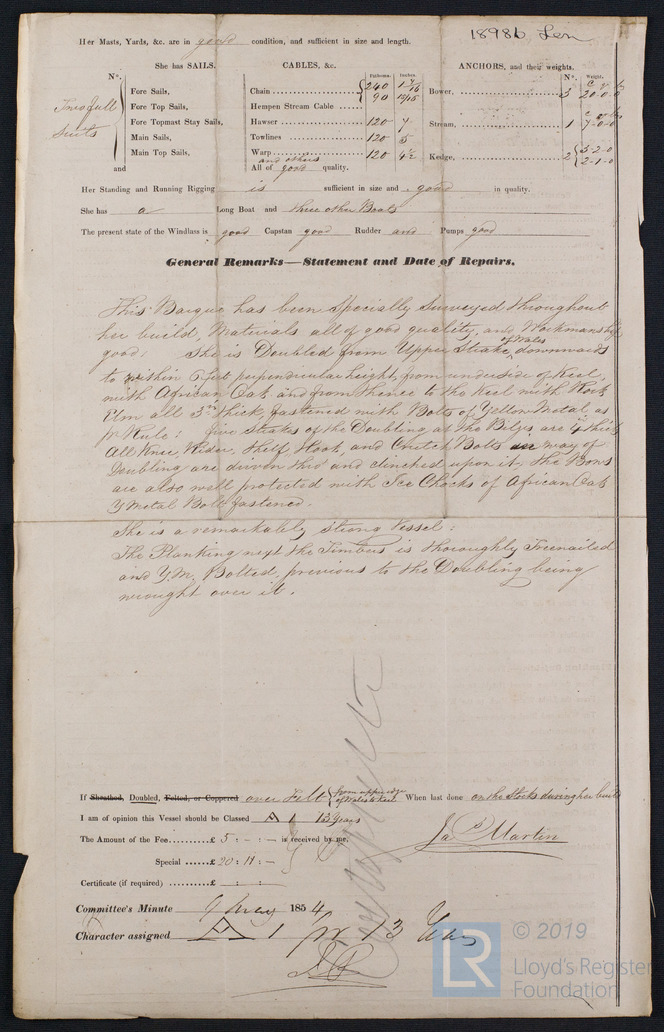 18986 Len
Her Masts, Yards, &c. are in good condition, and sufficient in size and length.
She has SAILS.
CABLES, &c.
ANCHORS, and their weights.
Nº.
Fathoms. Inches.
Nº. Weight.
Two full suits
Fore Sails,
Fore Top Sails,
Fore Topmast Stay Sails,
Main Sails,
Main Top Sails,
and
Chain 240 1 7/16
90 15/16
Hempen Stream Cable
Hawser 120 7
Towlines 120 5
Warp 120 4½
and others
All of good quality.
Bower, 3 20-0-0
Stream, 1 7-0-0
Kedge, 2 3-2-0
2-1-0
Her Standing and Running Rigging is sufficient in size and good in quality.
She has a Long Boat and three other Boats
The present state of the Windlass is good Capstan good Rudder and Pumps good
General Remarks—Statement and Date of Repairs.
This Barque has been Specially Surveyed throughout
her build, Materials all of good quality, and Workmanship
good. She is Doubled from Upper Strake of Wales downwards
to within 6 feet perpendicular height from underside of Keel,
with African Oak and from thence to the Keel with Rock
Elm all 3 ins thick, fastened with Bolts of Yellow Metal as
pr Rule: Five Strakes of the Doubling at the Bilges are 4 thick
All Knee, Rider, Shelf, Hook, and Crutch Bolts in way of
Doubling are driven thro and clinched upon it, The Bows
are also well protected with Ice Chocks of African Oak
Y Metal Bolt fastened.
She is a remarkably strong Vessel:
The Planking next the Timbers is thoroughly Treenailed
and Y.M. Bolted, previous to the Doubling being
wrought over it.
If Sheathed, Doubled, Felted, or Coppered over Felt from upper edge of Wales to keel When last done on the Stocks during her build
I am of opinion this Vessel should be Classed A 1 13 Years
The Amount of the Fee £ 5 : - : - is received by me,
Jas Martin
Special £ 20 : 11 : -
Certificate (if required) £ - : - : -
Committee's Minute 9 May 1854
Character assigned A 1 for 13 Years
© 2019
LR
Lloyd's Register
Foundation